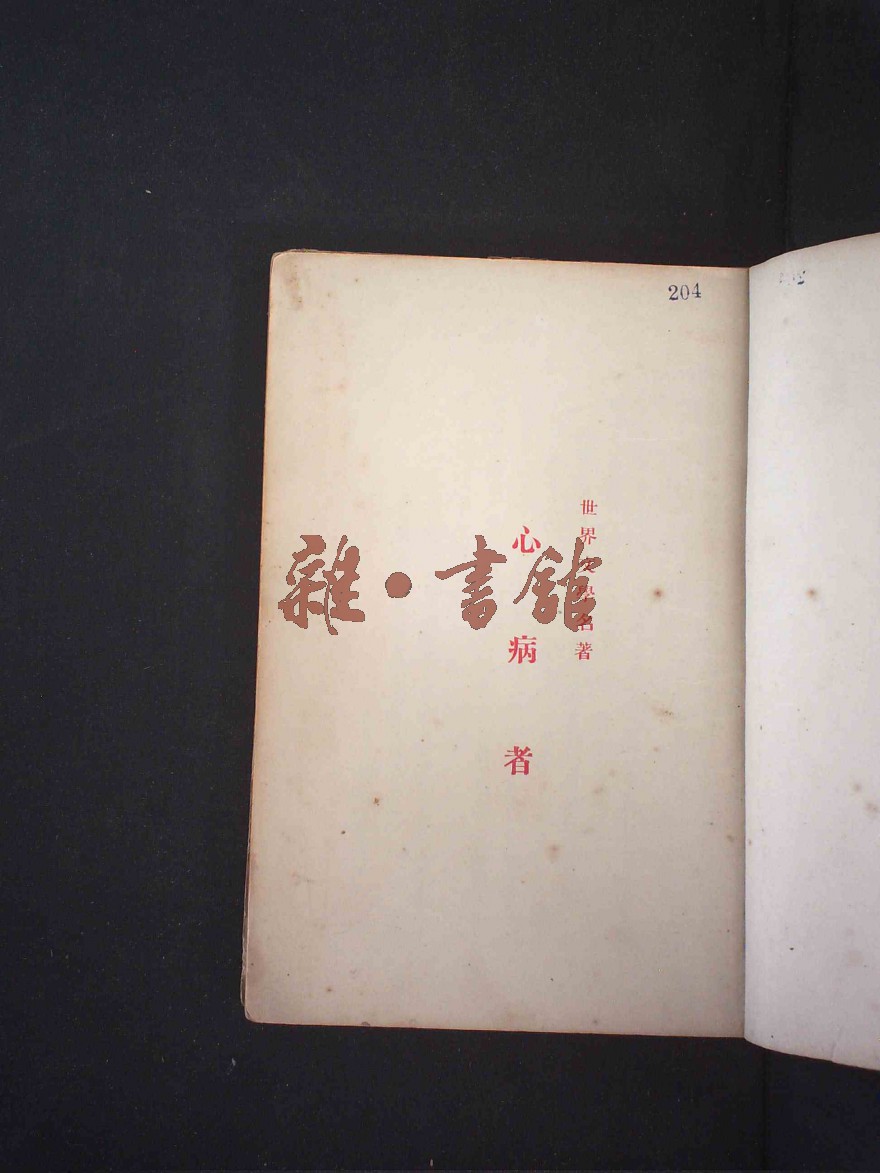 204
世界文學名著
心病者
雜·書館